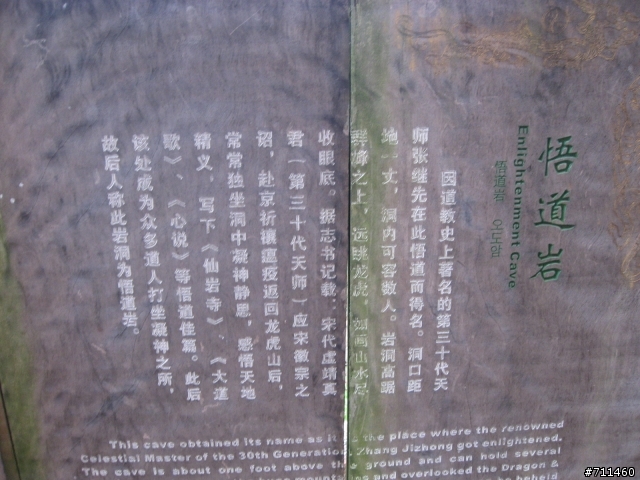 悟道岩
Enlightenment Cave
悟道岩 오도암
因道教史上著名的第三十代天
师张继先在此悟道而得名。洞口距
地一丈，洞内可容数人。岩洞高踞
群峰之上，远眺龙虎，如画山水尽
收眼底。据志书记载：宋代虚靖真
君（第三十代天师）应宋徽宗之
诏，赴京祈禳瘟疫返回龙虎山后，
常常独坐洞中凝神静思，感悟天地
精义，写下《仙岩寺》、《大道
歌》、《心说》等悟道佳篇。此后
该处成为众多道人打坐凝神之所，
故后人称此岩洞为悟道岩。
This cave obtained its name as it is the place where the renowned
Celestial Master of the 30th Generation, Zhang Jizhong got enlightened.
The cave is about one foot above the ground and can hold several
and overlooked the Dragon &
be beheld
#711460